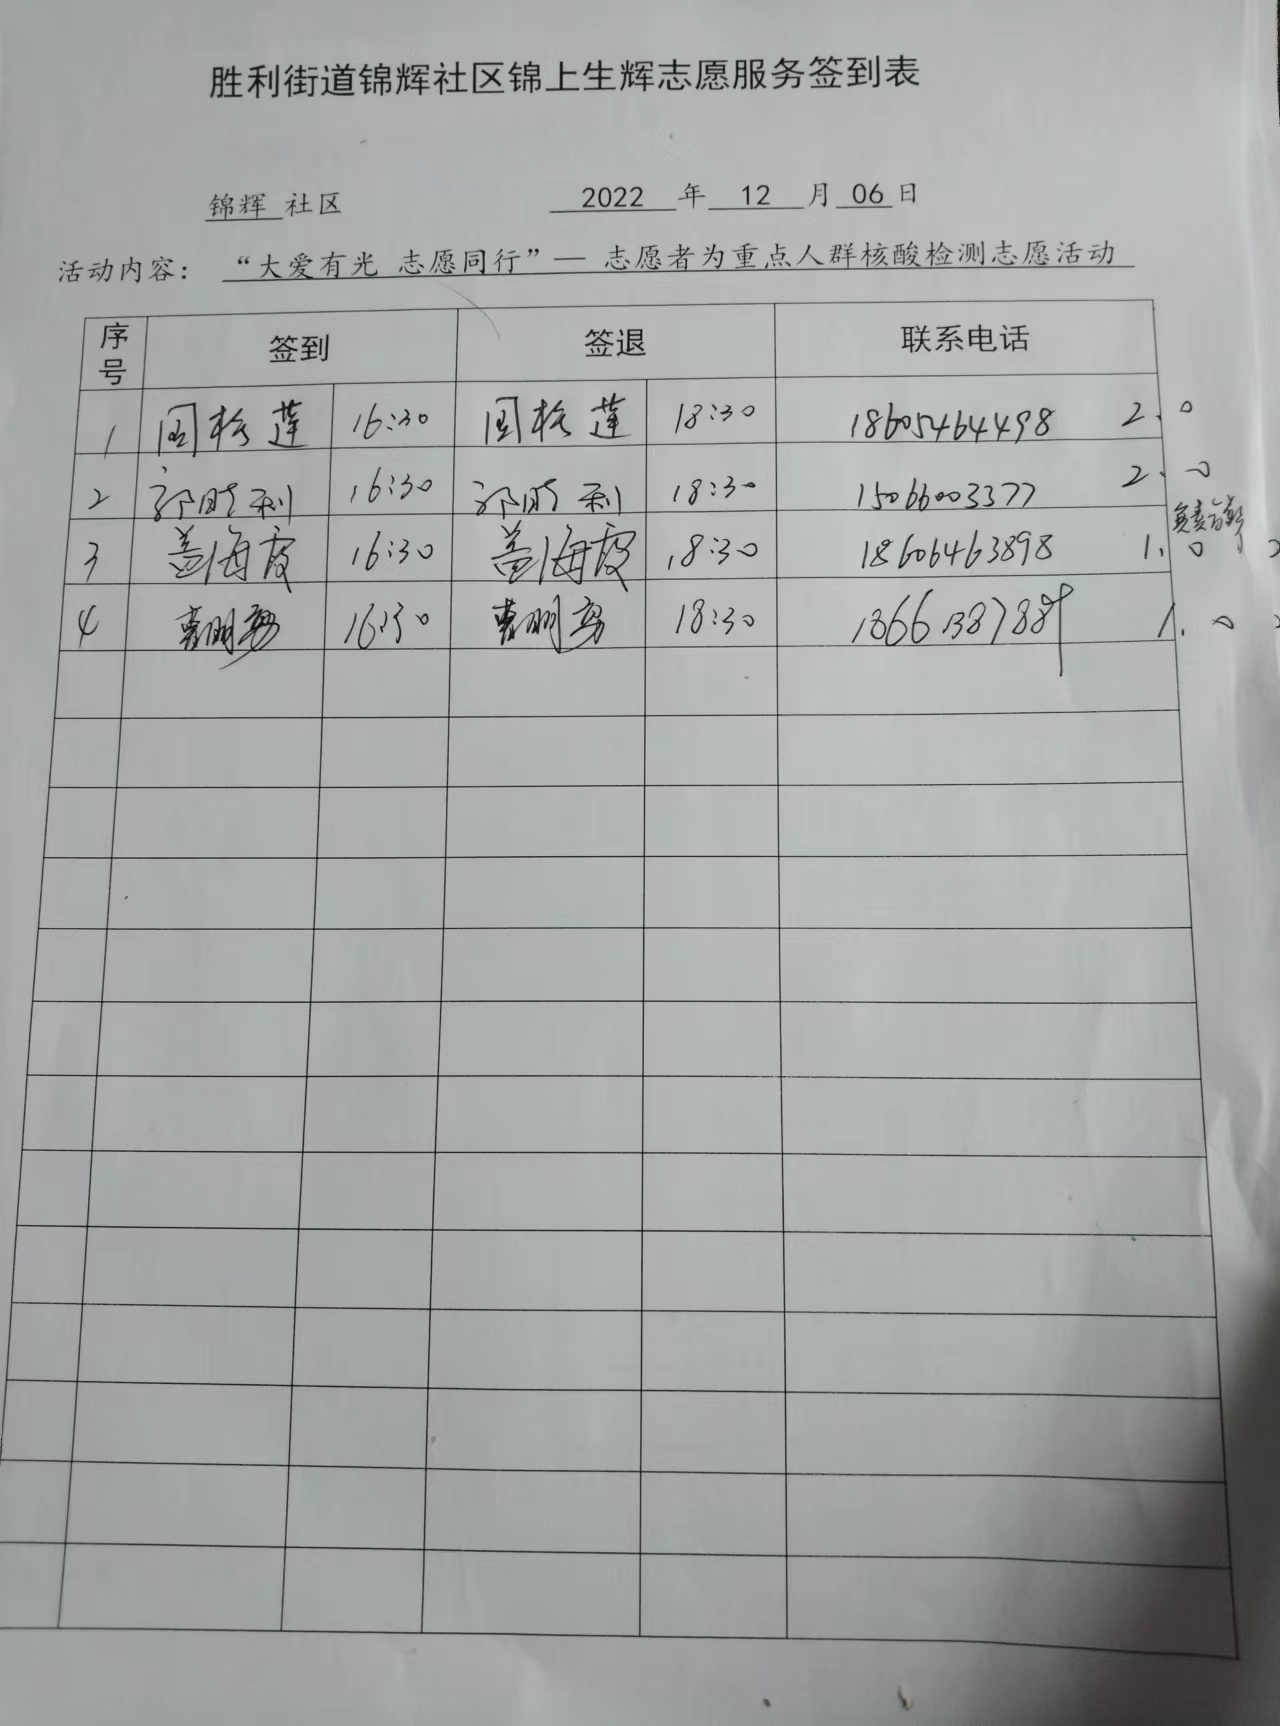 胜利街道锦辉社区锦上生辉志愿服务签到表
锦辉 社区 2022 年 12 月 06 日
活动内容： “大爱有光 志愿同行”— 志愿者为重点人群核酸检测志愿活动
序号 签到 签退 联系电话
1 周桂莲 16:30 周桂莲 18:30 18605464498 2.0
2 郭胜利 16:30 郭胜利 18:30 15066003377 2.0
3 盖海霞 16:30 盖海霞 18:30 18606463898 1.0
4 16:30 18:30 1.0